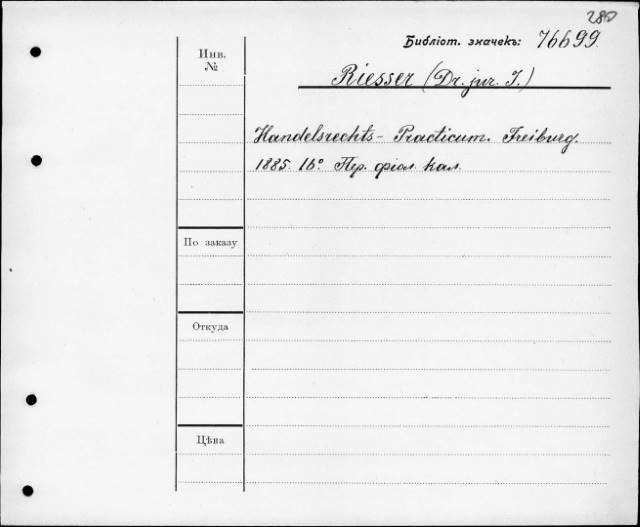 280
Библіот. значекъ: 76699.
Инв.
№
Riesser (Dr. jur. J.)
Handelsrechts - Practicum. Freiburg.
1885. 16° Пер. фіол. кал.
По заказу
Откуда
Цѣна